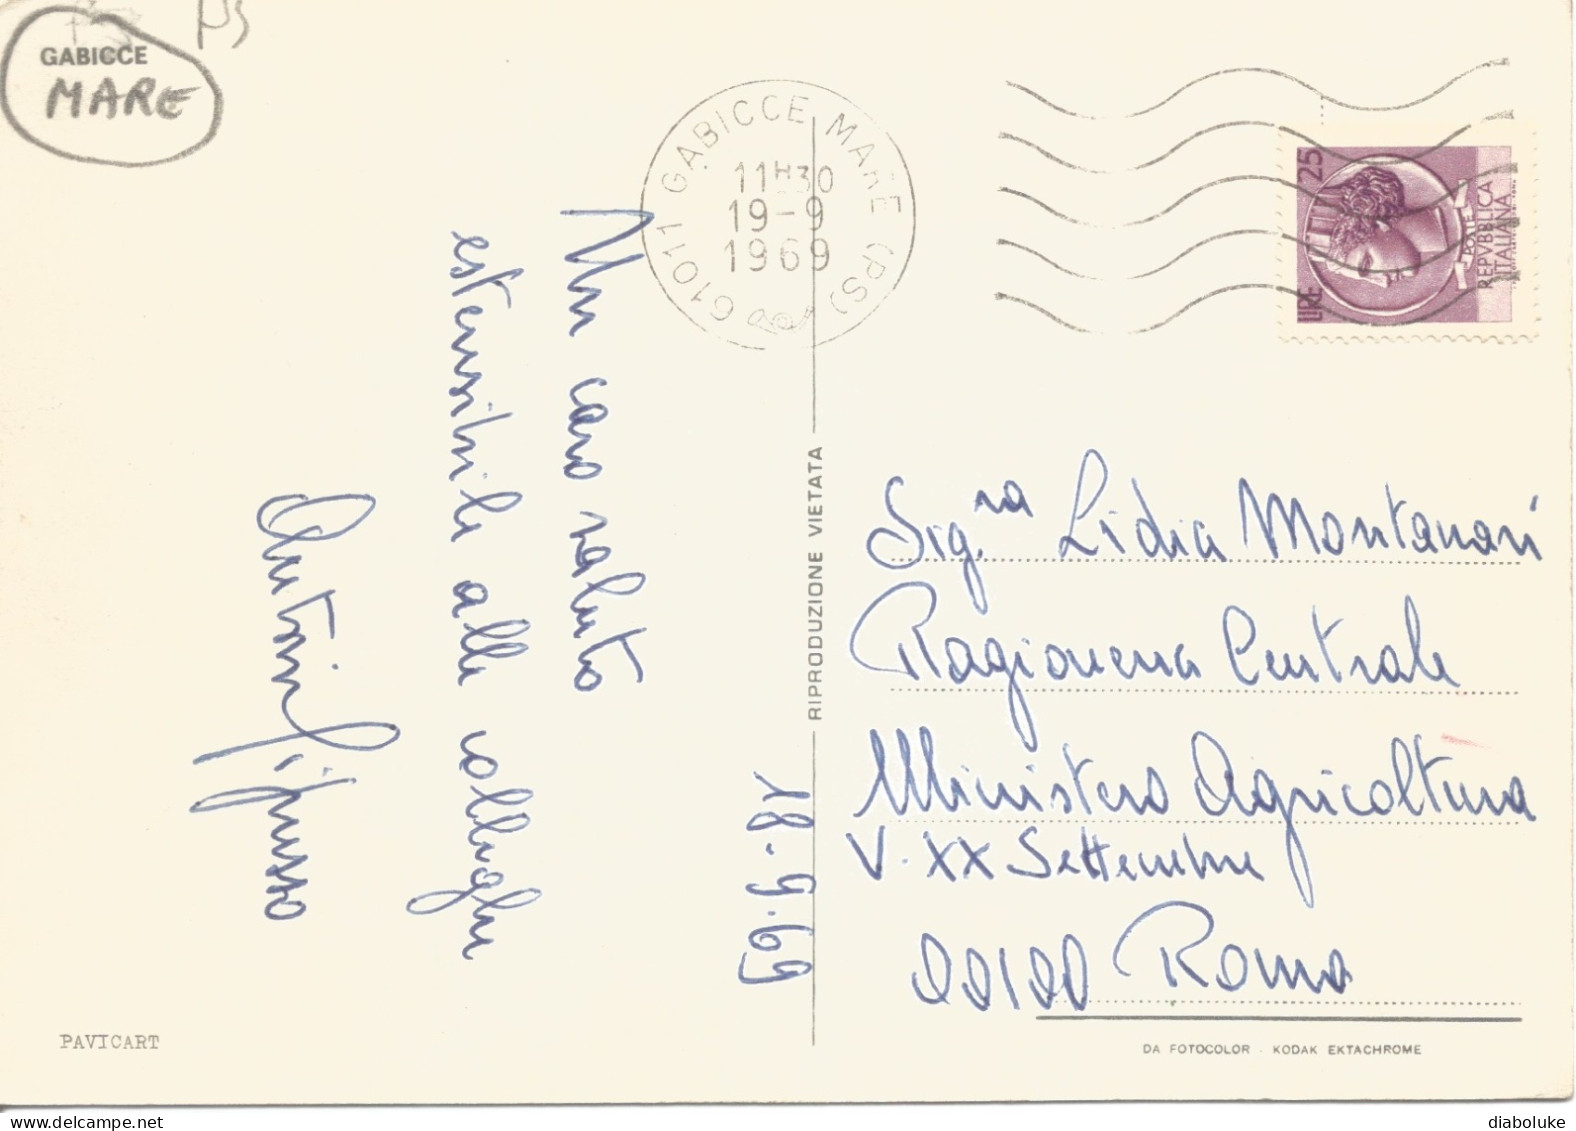 PS
GABICCE
MARE
61011 GABICCE MARE (PS)
11H30
19-9
1969
LIRE 25
REPVBBLICA
ITALIANA
Un caro saluto
estensibile alle colleghe
18.9.69
RIPRODUZIONE VIETATA
Sig.ra Lidia Montanari
Ragioneria Centrale
Ministero Agricoltura
V. XX Settembre
00100 Roma
PAVICART
DA FOTOCOLOR - KODAK EKTACHROME
diaboluke